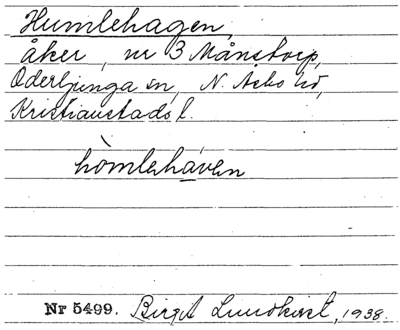 Humlehagen,
åker, nr 3 Månstorp,
Oderljunga sn, N. Åsbo hd,
Kristianstads l.
hòmleháven
Nr 5499. Birgit Lundkvist, 1938.